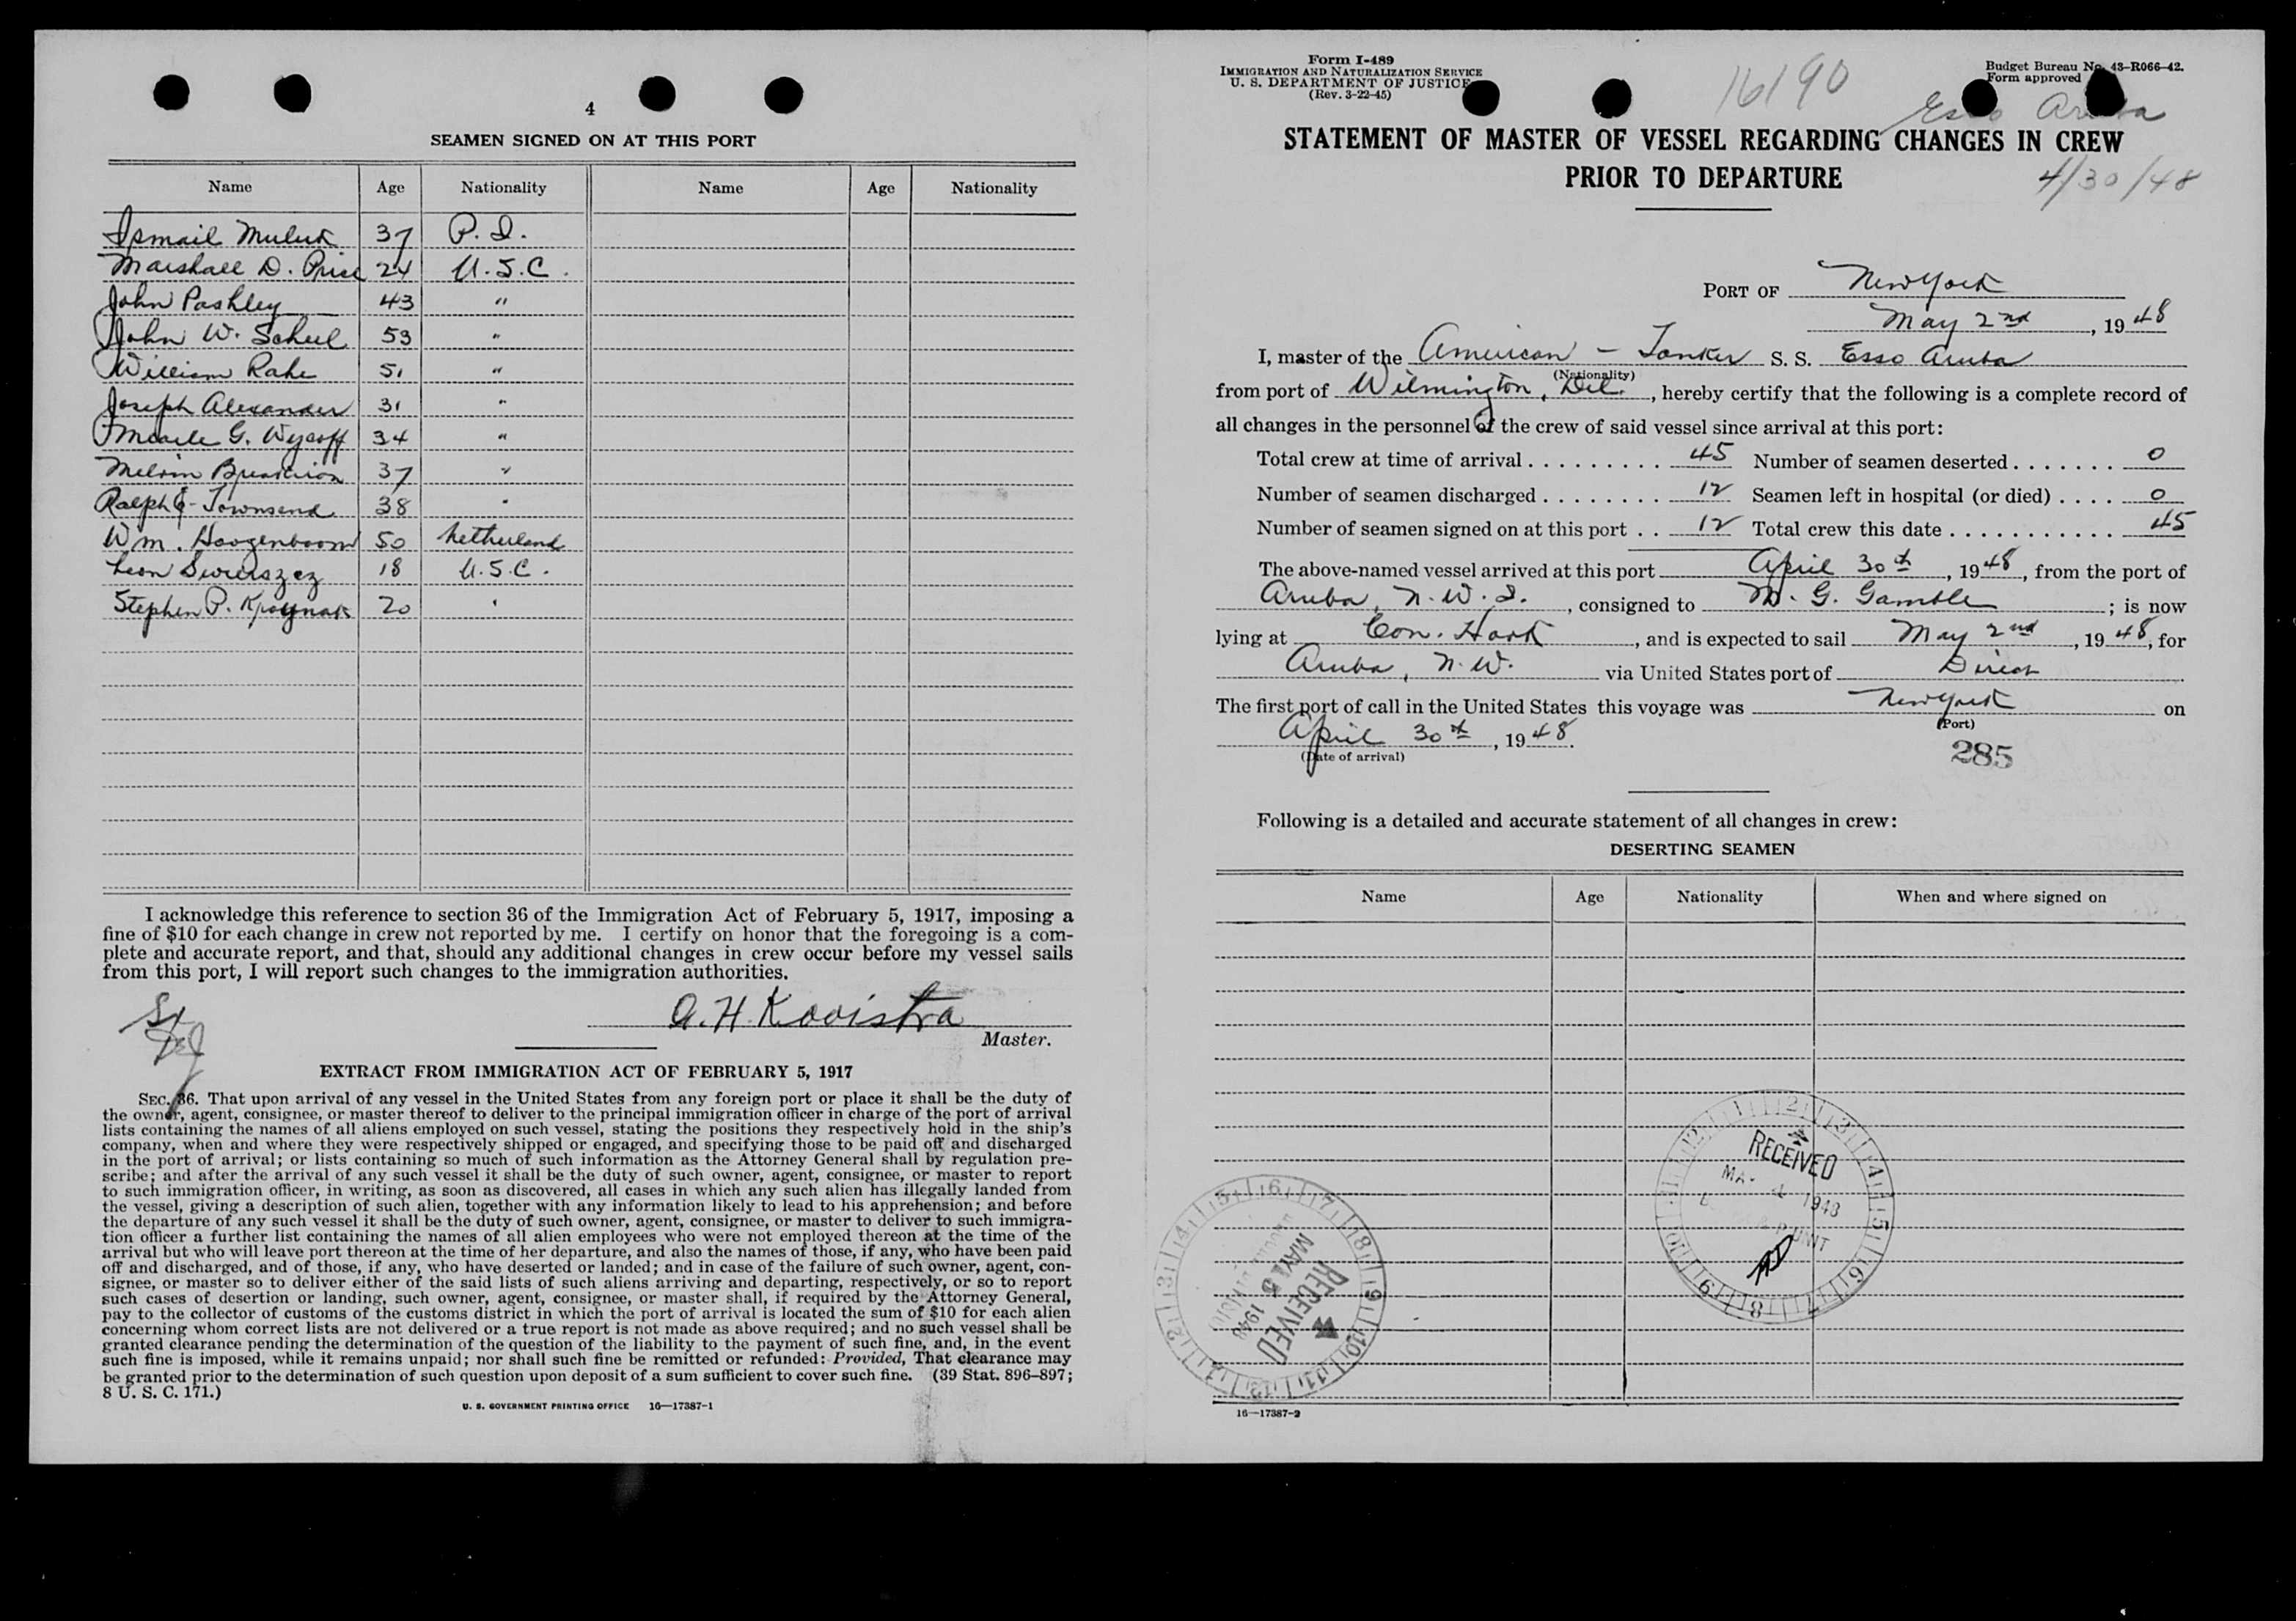 4
SEAMEN SIGNED ON AT THIS PORT
Name Age Nationality Name Age Nationality
Ismail Muluk 37 P. I.
Marshall D. Price 24 U.S.C.
John Pashley 43 "
John W. Scheel 53 "
William Rahe 51 "
Joseph Alexander 31 "
G. Wycoff 34 "
Melvin 37 "
Ralph Townsend 38 "
Wm. Hoogenboom 50 Netherland
Leon 18 U.S.C.
Stephen P. 20 "
I acknowledge this reference to section 36 of the Immigration Act of February 5, 1917, imposing a
fine of $10 for each change in crew not reported by me. I certify on honor that the foregoing is a com-
plete and accurate report, and that, should any additional changes in crew occur before my vessel sails
from this port, I will report such changes to the immigration authorities.
A. H. Kooistra
Master.
EXTRACT FROM IMMIGRATION ACT OF FEBRUARY 5, 1917
SEC. 36. That upon arrival of any vessel in the United States from any foreign port or place it shall be the duty of
the owner, agent, consignee, or master thereof to deliver to the principal immigration officer in charge of the port of arrival
lists containing the names of all aliens employed on such vessel, stating the positions they respectively hold in the ship's
company, when and where they were respectively shipped or engaged, and specifying those to be paid off and discharged
in the port of arrival; or lists containing so much of such information as the Attorney General shall by regulation pre-
scribe; and after the arrival of any such vessel it shall be the duty of such owner, agent, consignee, or master to report
to such immigration officer, in writing, as soon as discovered, all cases in which any such alien has illegally landed from
the vessel, giving a description of such alien, together with any information likely to lead to his apprehension; and before
the departure of any such vessel it shall be the duty of such owner, agent, consignee, or master to deliver to such immigra-
tion officer a further list containing the names of all alien employees who were not employed thereon at the time of the
arrival but who will leave port thereon at the time of her departure, and also the names of those, if any, who have been paid
off and discharged, and of those, if any, who have deserted or landed; and in case of the failure of such owner, agent, con-
signee, or master so to deliver either of the said lists of such aliens arriving and departing, respectively, or so to report
such cases of desertion or landing, such owner, agent, consignee, or master shall, if required by the Attorney General,
pay to the collector of customs of the customs district in which the port of arrival is located the sum of $10 for each alien
concerning whom correct lists are not delivered or a true report is not made as above required; and no such vessel shall be
granted clearance pending the determination of the question of the liability to the payment of such fine, and, in the event
such fine is imposed, while it remains unpaid; nor shall such fine be remitted or refunded: Provided, That clearance may
be granted prior to the determination of such question upon deposit of a sum sufficient to cover such fine. (39 Stat. 896–897;
8 U. S. C. 171.)
U. S. GOVERNMENT PRINTING OFFICE 16—17387-1
Form I-489
IMMIGRATION AND NATURALIZATION SERVICE
U. S. DEPARTMENT OF JUSTICE
(Rev. 3-22-45)
16190
Budget Bureau No. 43-R066-42.
Form approved
Esso Aruba
STATEMENT OF MASTER OF VESSEL REGARDING CHANGES IN CREW
PRIOR TO DEPARTURE
4/30/48
PORT OF New York
May 2nd, 1948
I, master of the American - Tanker S. S. Esso Aruba
(Nationality)
from port of Wilmington, Del., hereby certify that the following is a complete record of
all changes in the personnel of the crew of said vessel since arrival at this port:
Total crew at time of arrival . . . . . . . . . 45 Number of seamen deserted . . . . . . . 0
Number of seamen discharged . . . . . . . . 12 Seamen left in hospital (or died) . . . . 0
Number of seamen signed on at this port . . 12 Total crew this date . . . . . . . . . . . 45
The above-named vessel arrived at this port April 30th, 1948, from the port of
Aruba, N.W.I., consigned to M. G. Gamble; is now
lying at Con. Hook, and is expected to sail May 2nd, 1948, for
Aruba, N.W. via United States port of Direct
The first port of call in the United States this voyage was New York on
(Port)
April 30th, 1948.
(Date of arrival)
285
Following is a detailed and accurate statement of all changes in crew:
DESERTING SEAMEN
Name Age Nationality When and where signed on
RECEIVED
1948
RECEIVED
MAY 5 1948
16—17387-2